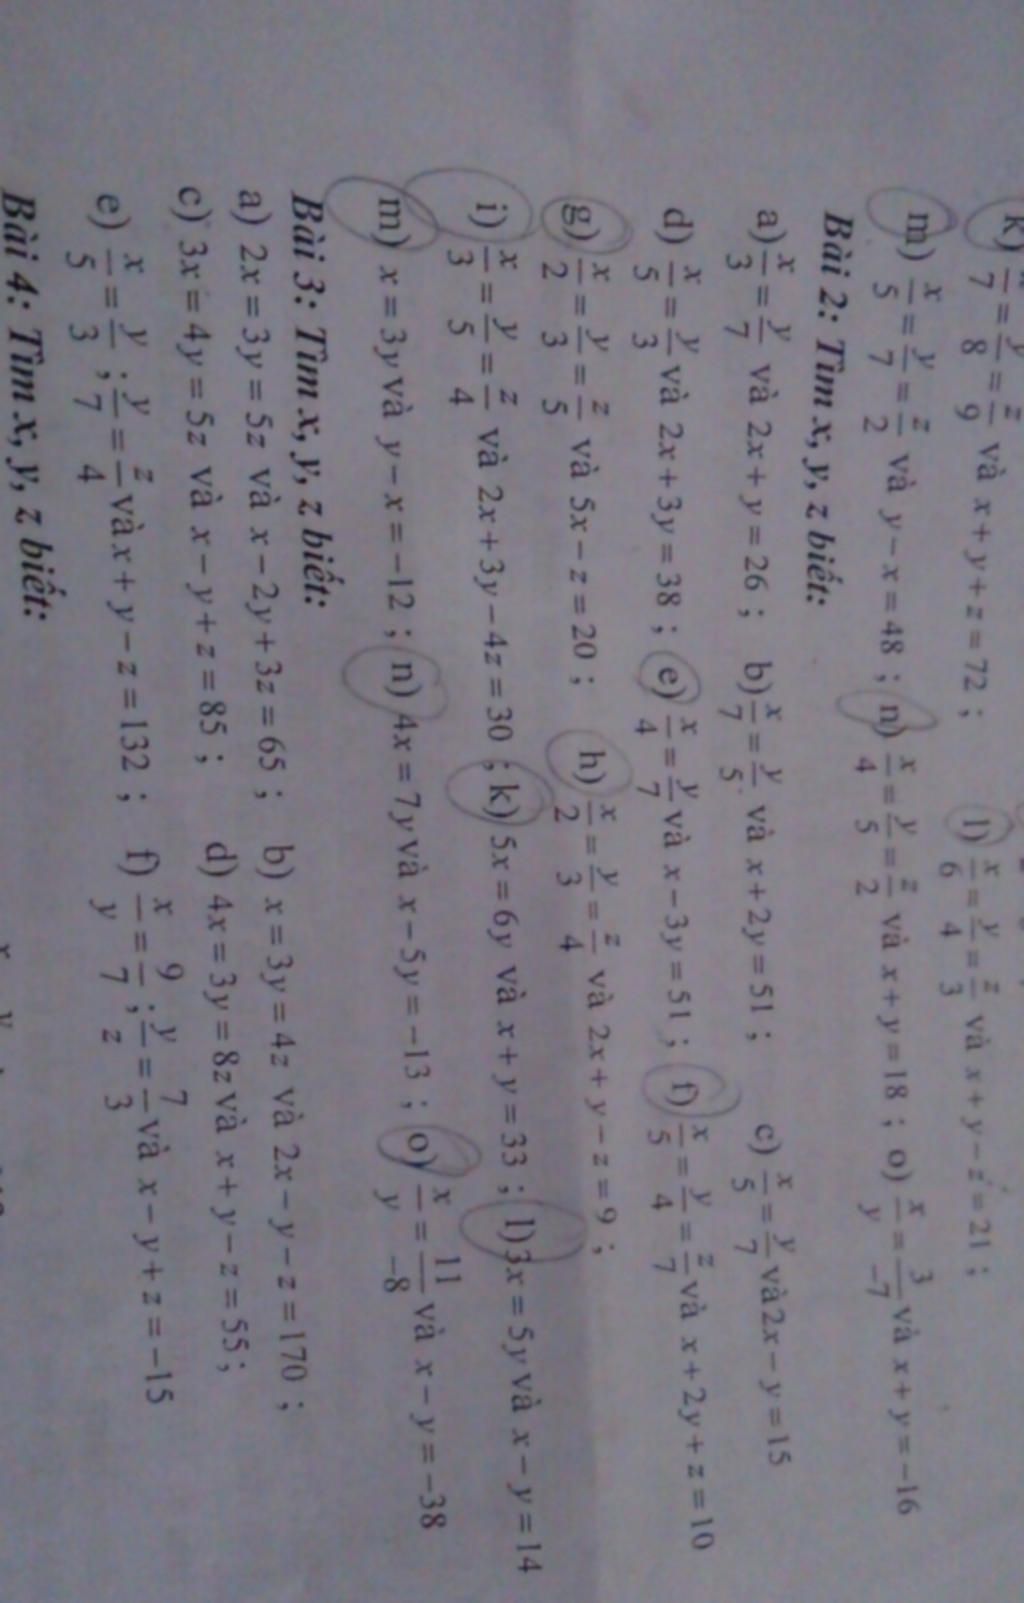 k) x/7 = y/8 = z/9 và x + y + z = 72 ; l) x/6 = y/4 = z/3 và x + y − z = 21 ;
m) x/5 = y/7 = z/2 và y − x = 48 ; n) x/4 = y/5 = z/2 và x + y = 18 ; o) x/y = 3/−7 và x + y = −16
Bài 2: Tìm x, y, z biết:
a) x/3 = y/7 và 2x + y = 26 ; b) x/7 = y/5 và x + 2y = 51 ; c) x/5 = y/7 và 2x − y = 15
d) x/5 = y/3 và 2x + 3y = 38 ; e) x/4 = y/7 và x − 3y = 51 ; f) x/5 = y/4 = z/7 và x + 2y + z = 10
g) x/2 = y/3 = z/5 và 5x − z = 20 ; h) x/2 = y/3 = z/4 và 2x + y − z = 9 ;
i) x/3 = y/5 = z/4 và 2x + 3y − 4z = 30 ; k) 5x = 6y và x + y = 33 ; l) 3x = 5y và x − y = 14
m) x = 3y và y − x = −12 ; n) 4x = 7y và x − 5y = −13 ; o) x/y = 11/−8 và x − y = −38
Bài 3: Tìm x, y, z biết:
a) 2x = 3y = 5z và x − 2y + 3z = 65 ; b) x = 3y = 4z và 2x − y − z = 170 ;
c) 3x = 4y = 5z và x − y + z = 85 ; d) 4x = 3y = 8z và x + y − z = 55 ;
e) x/5 = y/3 ; y/7 = z/4 và x + y − z = 132 ; f) x/y = 9/7 ; y/z = 7/3 và x − y + z = −15
Bài 4: Tìm x, y, z biết: